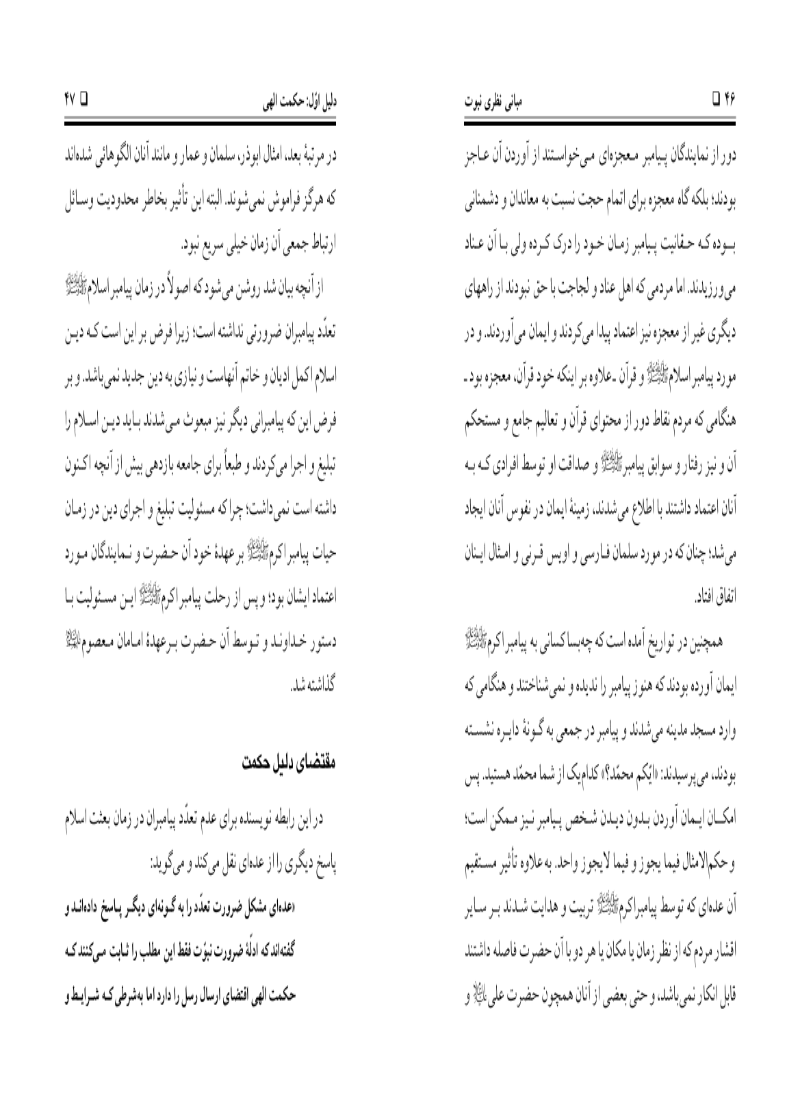 ۴۶ □ مبانی نظری نبوت
دور از نمایندگان پیامبر معجزه‌ای می‌خواستند از آوردن آن عاجز
بودند؛ بلکه گاه معجزه برای اتمام حجت نسبت به معاندان و دشمنانی
بوده که حقانیت پیامبر زمان خود را درک کرده ولی با آن عناد
می‌ورزیدند. اما مردمی که اهل عناد و لجاجت با حق نبودند از راههای
دیگری غیر از معجزه نیز اعتماد پیدا می‌کردند و ایمان می‌آوردند. و در
مورد پیامبر اسلامﷺ و قرآن ـ علاوه بر اینکه خود قرآن، معجزه بود ـ
هنگامی که مردم نقاط دور از محتوای قرآن و تعالیم جامع و مستحکم
آن و نیز رفتار و سوابق پیامبرﷺ و صداقت او توسط افرادی که به
آنان اعتماد داشتند با اطلاع می‌شدند، زمینهٔ ایمان در نفوس آنان ایجاد
می‌شد؛ چنان که در مورد سلمان فارسی و اویس قرنی و امثال اینان
اتفاق افتاد.
همچنین در تواریخ آمده است که چه‌بسا کسانی به پیامبر اکرمﷺ
ایمان آورده بودند که هنوز پیامبر را ندیده و نمی‌شناختند و هنگامی که
وارد مسجد مدینه می‌شدند و پیامبر در جمعی به گونهٔ دایره نشسته
بودند، می‌پرسیدند: «ایّکم محمّد؟» کدام‌یک از شما محمّد هستید. پس
امکان ایمان آوردن بدون دیدن شخص پیامبر نیز ممکن است؛
و حکم‌الامثال فیما یجوز و فیما لایجوز واحد. به علاوه تأثیر مستقیم
آن عده‌ای که توسط پیامبر اکرمﷺ تربیت و هدایت شدند بر سایر
اقشار مردم که از نظر زمان یا مکان یا هر دو با آن حضرت فاصله داشتند
قابل انکار نمی‌باشد، و حتی بعضی از آنان همچون حضرت علی علیه‌السلام و
دلیل اوّل: حکمت الهی □ ۴۷
در مرتبهٔ بعد، امثال ابوذر، سلمان و عمار و مانند آنان الگوهائی شده‌اند
که هرگز فراموش نمی‌شوند. البته این تأثیر بخاطر محدودیت وسائل
ارتباط جمعی آن زمان خیلی سریع نبود.
از آنچه بیان شد روشن می‌شود که اصولاً در زمان پیامبر اسلامﷺ
تعدّد پیامبران ضرورتی نداشته است؛ زیرا فرض بر این است که دین
اسلام اکمل ادیان و خاتم آنهاست و نیازی به دین جدید نمی‌باشد. و بر
فرض این که پیامبرانی دیگر نیز مبعوث می‌شدند باید دین اسلام را
تبلیغ و اجرا می‌کردند و طبعاً برای جامعه بازدهی بیش از آنچه اکنون
داشته است نمی‌داشت؛ چرا که مسئولیت تبلیغ و اجرای دین در زمان
حیات پیامبر اکرمﷺ بر عهدهٔ خود آن حضرت و نمایندگان مورد
اعتماد ایشان بود؛ و پس از رحلت پیامبر اکرمﷺ این مسئولیت با
دستور خداوند و توسط آن حضرت بر عهدهٔ امامان معصوم علیهم‌السلام
گذاشته شد.
مقتضای دلیل حکمت
در این رابطه نویسنده برای عدم تعدّد پیامبران در زمان بعثت اسلام
پاسخ دیگری را از عده‌ای نقل می‌کند و می‌گوید:
«عده‌ای مشکل ضرورت تعدّد را به گونه‌ای دیگر پاسخ داده‌اند و
گفته‌اند که ادلّهٔ ضرورت نبوّت فقط این مطلب را ثابت می‌کنند که
حکمت الهی اقتضای ارسال رسل را دارد اما به‌شرطی که شرایط و